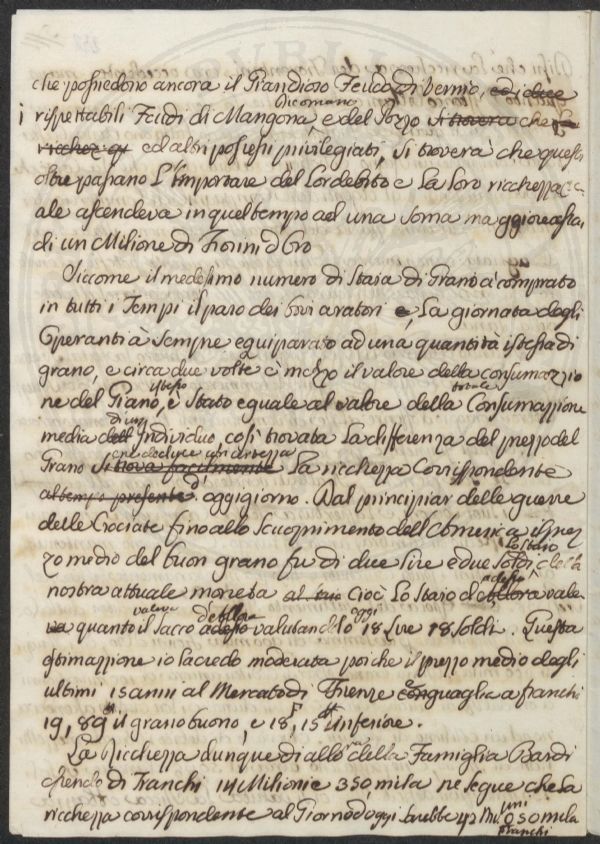 che possiedono ancora il Grandioso Feudo di Vernio,
rispettabili Feudi di Mangona, Dicomano e del Pozzo si trovera che la
ricchez ed altri possessi privilegiati, si troverà che questi
oltre passano L'Importare del Lor debito e La loro ricchezza
ale ascendeva in quel tempo ad una Soma maggiore assai
di un Milione di Fiorini d'Oro
Siccome il medesimo numero di Staia di Grano à comprato
in tutti i Tempi il paro dei bovi aratori e La giornata degli
Operanti à Sempre equiparato ad una quantità istessa di
grano, e circa due volte e mezzo il valore della consumazzio
ne del Grano, istesso è Stato eguale al valore totale della Consumazzione
media dell di un Individuo, così trovata La differenza del prezzo del
Grano si trova facilmente La ricchezza Corrispondente
al tempo presente d'oggigiorno. Dal principiar delle guerre
delle Crociate fino allo Scuoprimento dell'America il prez
zo medio del buon grano fu di due Lire e due Soldi Lo staio della
nostra attuale moneta cioè Lo Staio d'allora vale
va quanto il sacco adesso d'allora valutandolo oggi 18 Lire 18 Soldi. Questa
stimazzione io La credo moderata poiche il prezzo medio degli
ultimi 15 anni al Mercato di Firenze conguaglia a franchi
19, 89 il grano buono, e 18, 15 l'inferiore.
La Ricchezza dunque di allora della Famiglia Bardi
essendo di Franchi 14 Milioni e 350 mila ne segue che La
ricchezza corrispondente al Giorno d'oggi sarebbe 42 Milioni 050 mila
franchi